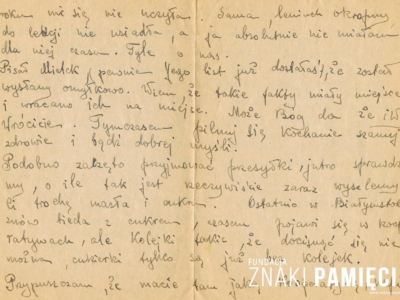 roku mi się nie uczyłam. Sama leniuch okropny
do lekcji nie usiadła, a ja absolutnie nie miałam
dla niej czasu. Tyle o nas.
Pisał Mietek, pewnie Jego list już dostałaś, że został
wysłany omyłkowo. Wiem że takie fakty miały miejsce
i wracano ich na miejsce. Może Bóg da że i W
wrócicie. Tymczasem pilnuj się Kochanie szanuj
zdrowie i bądź dobrej myśli!
Podobno zaczęto przyjmować przesyłki, jutro sprawdzi
my, o ile tak jest rzeczywiście zaraz wyślemy
li trochę masła i cukru. Ostatnio w Białymstoku
znów bieda z cukrem, czasem pojawi się w koop
ratywach, ale kolejki takie, że docisnąć się nie
można, cukierki tylko są już bez kolejek.
Przypuszczam, że macie tam jakieś
FUNDACJA
ZNAKI PAMIĘCI